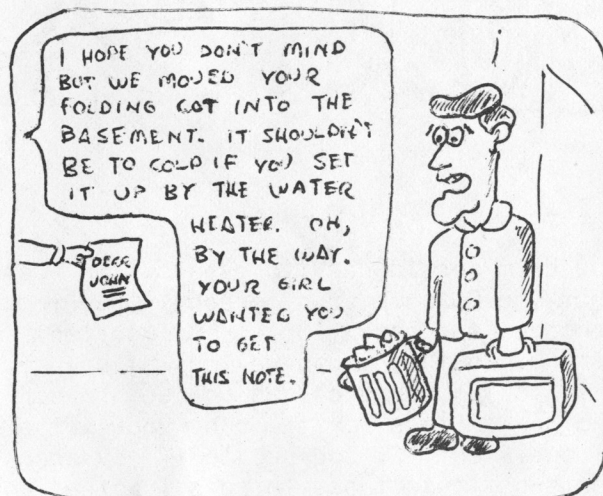 I HOPE YOU DON'T MIND
BUT WE MOVED YOUR
FOLDING COT INTO THE
BASEMENT. IT SHOULDN'T
BE TO COLD IF YOU SET
IT UP BY THE WATER
HEATER. OH,
BY THE WAY.
YOUR GIRL
WANTED YOU
TO GET
THIS NOTE.
DEAR
JOHN